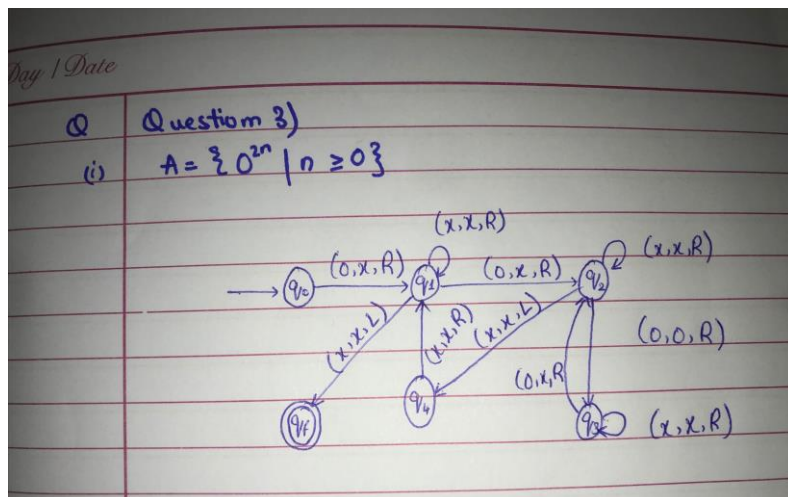 Day / Date
Q Question 3)
(i) A = { 0^2n | n ≥ 0 }
(x, x, R)
(0, x, R) (0, x, R) (x, x, R)
q0 q1 q2
(x, x, L) (x, x, R) (x, x, L) (0, 0, R)
(0, x, R
qf q4 q3 (x, x, R)